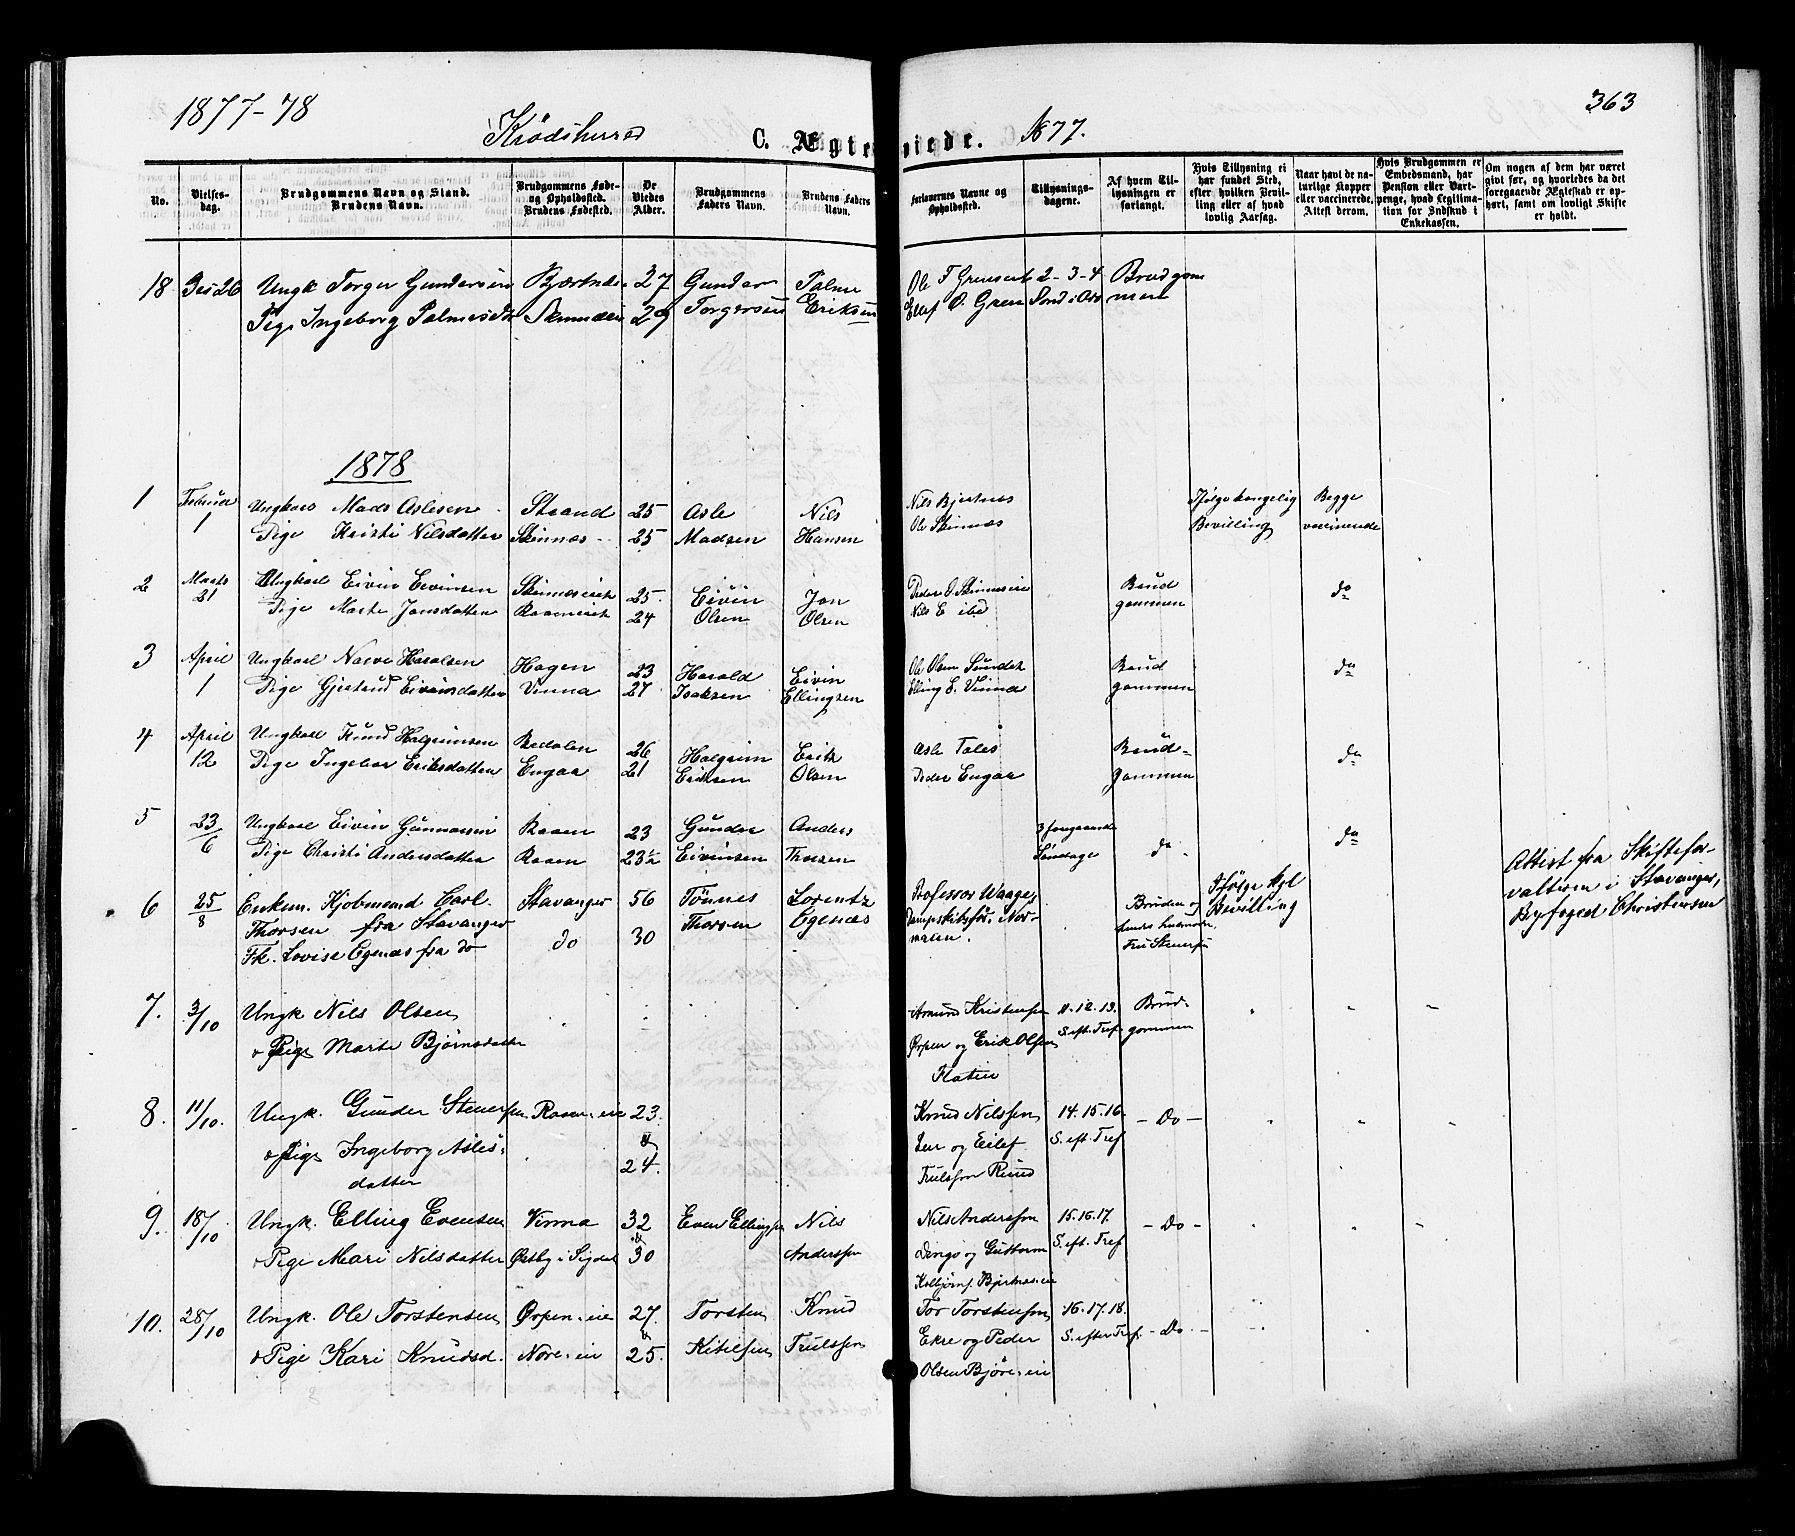 1877-78
Krødsherred
C. Ægteviede.
1877.
363
No.
Vielses-dag.
Brudgommens Navn og Stand. Brudens Navn.
Brudgommens Føde- og Opholdssted. Brudens Fødested.
De Viedes Alder.
Brudgommens Faders Navn.
Brudens Faders Navn.
Forlovernes Navne og Opholdssted.
Tillysnings-dagene.
Af hvem Tillysningen er forlangt.
Hvis Tillysning ei har fundet Sted, efter hvilken Bevilling eller af hvad lovlig Aarsag.
Naar havt de naturlige Kopper eller vaccinerede. Attest derom.
Hvis Brudgommen er Embedsmand, har Pension eller Vartpenge, hvad Legitimation for Indskud i Enkekassen.
Om nogen af dem har været gift før, og hvorledes da det foregaaende Ægteskab er ophørt, samt om lovligt Skifte er holdt.
18 Des 26 Ungk Torger Gundersen 27 Gunder Palme Ole T Grensert 2-3-4 Brudgom
Pige Ingeborg Palmesdtr 29 Torgersen Eriksen Ellef O. Gren Sønd i Adv men
1878
1 Februar Ungkarl Mads Aslesen Strand 25 Asle Nils Nils Bjertnes Ifølge kongelig Begge
1 Pige Kristi Nilsdatter Skinnes 25 Madsen Hansen Ole Skinnes Bevilling vaccinerede
2 Marts Ungkarl Eivin Eivinsen Skinneseiet 25 Eivin Jon Peder O. Skinneseie Brud do
21 Pige Marte Jonsdatter 24 Olsen Olsen Nils E ibd gommen
3 April Ungkarl Narve Haralsen Hagen 23 Harald Eivin Ole Olsen Sundet Brud do
1 Pige Gjertrud Eivinsdatter Vinna 27 Isaksen Ellingsen Elling E. Vinna gommen
4 April Ungkarl Knud Halgrimsen Bredalen 26 Halgrim Erik Asle Brud- do
12 Pige Ingebor Eriksdatter Engar 21 Eriksen Olsen Peder Engar gommen
5 23/6 Ungkarl Eivin Gunnarsen Raaen 23 Gunder Anders 3 foregaaende do do
Pige Christi Andersdatter Raaen 23½ Eivinsen Thorsen Søndage
6 25/8 Enkem. Kjøbmand Carl Stavanger 56 Tönnes Lorentz Professor Waage, Bruden og Ifølge Kgl Bevilling Attest fra Skiftefor-
Thorsen fra Stavanger Thorsen Egenæs Dampskibsfør. Nor- hendes valteren i Stavanger,
Fk. Lovise Egenæs fra do do 30 mann. Byfoged Christensen
7. 3/10 Ungk Nils Olsen Amund Kristensen 11.12.13. Brud-
& Pige Marte Bjørnsdatter Ørpen og Erik Olsen S. eft. Tref. gommen
Flaten
8. 11/10. Ungk. Gunder Steners. Raaen-eie 23. Knud Nilssen 14.15.16. - Do -
& Pige Ingeborg Asles- & 24. og Eilef S. eft. Tref
datter Trulssen Ruud
9. 18/10. Ungk. Elling Evensen Vinna 32 Even Ellings. Nils Nils Anderssen 15.16.17. - Do -
& Pige Mari Nilsdatter Østby i Sigdal & 30 Anderssen og Guttorm S. eft. Tref
Kolbjørns. Bjertnes-eie
10. 28/10 Ungk. Ole Torstensen Ørpen-eie 27. Torsten Knud Tor Torstensen 16.17.18. - Do -
& Pige Kari Knudsd. Nore-eie & 25. Kitilsen Trulssen Ekre og Peder S. efter Tref.
Olsen Bjøre-eie